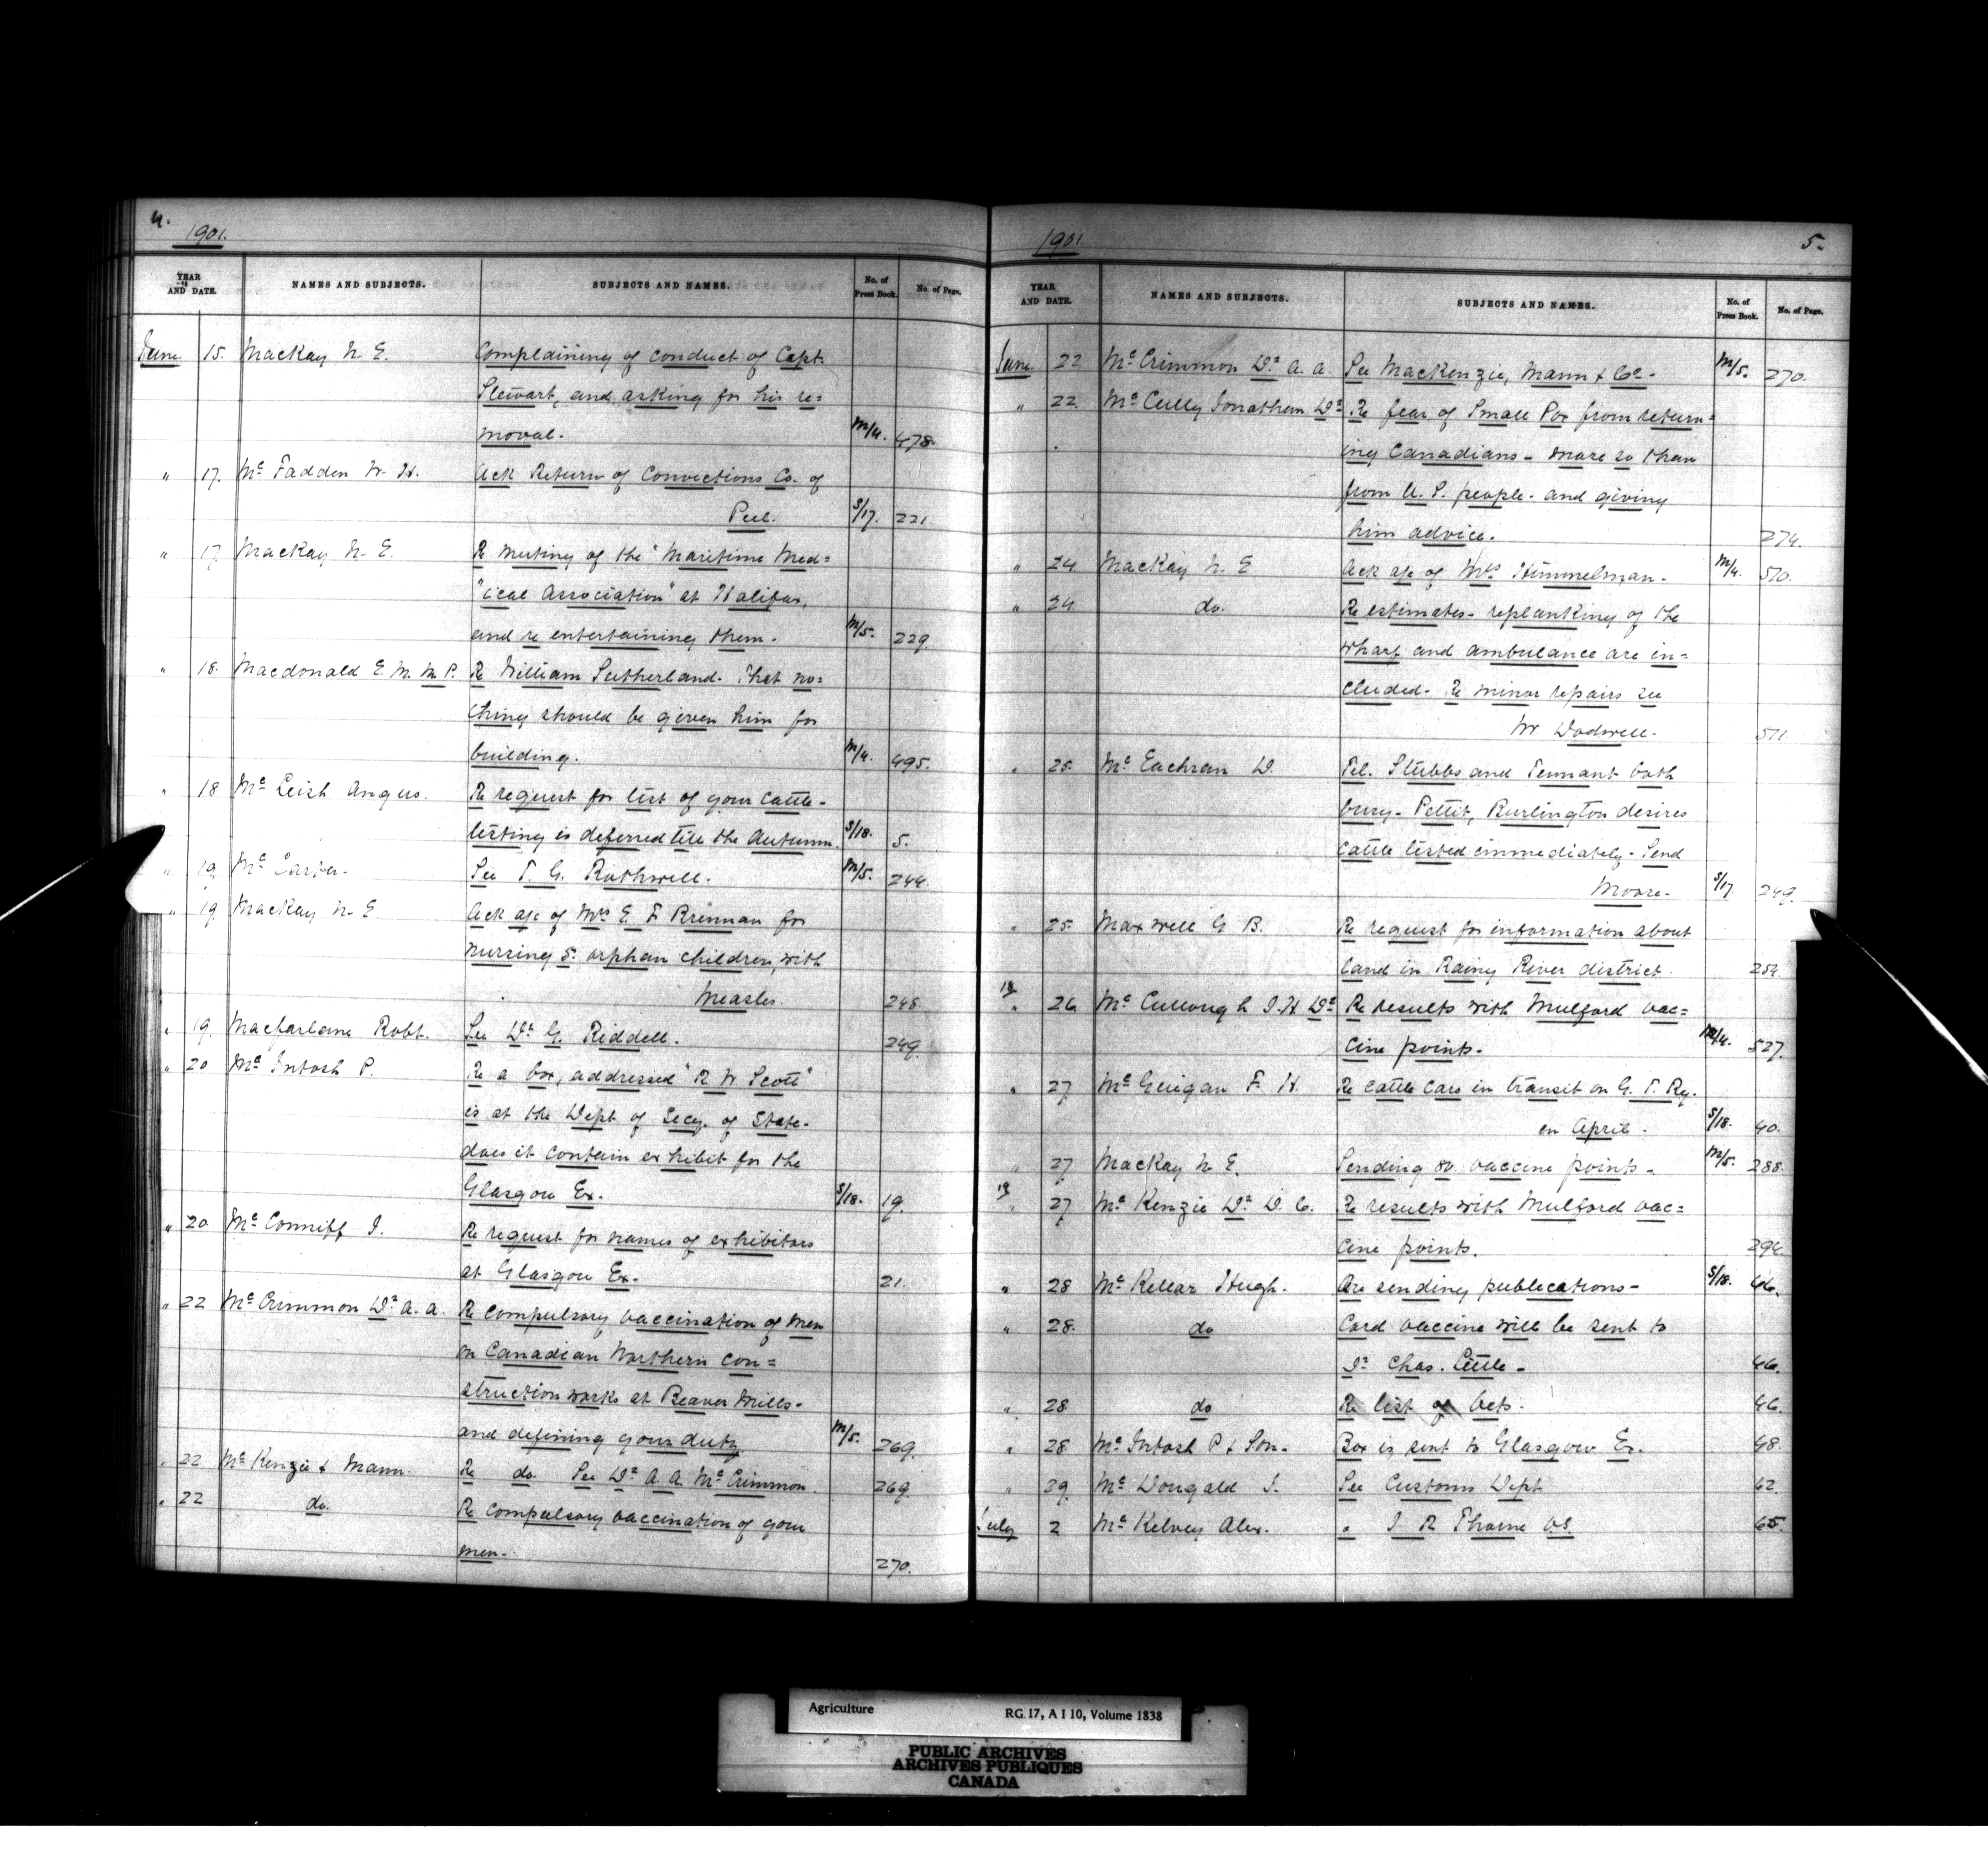 4.
1901.
YEAR AND DATE. NAMES AND SUBJECTS. SUBJECTS AND NAMES. No. of Press Book. No. of Page.
June 15. MacKay N. E. Complaining of conduct of Capt.
Stewart, and asking for his re=
moval. M/4. 478.
" 17. Mc Fadden W. H. Ack Return of Convictions Co. of
Peel. S/17. 221
" 17. MacKay N. E. Re meeting of the "Maritime Med=
"ical Association" at Halifax,
and re entertaining them. M/5. 229.
" 18. Macdonald E. M. M.P. Re William Sutherland. That no=
thing should be given him for
building. M/4. 495.
" 18 Mc Leish Angus. Re request for list of your cattle-
testing is deferred till the Autumn. S/18. 5.
" 19. Mc Carter. See T. G. Rothwell. M/5. 244.
" 19 MacKay N. E Ack a/c of Mrs E. F. Brennan for
nursing 5 orphan children, with
Measles. 248.
" 19. Macfarlane Robt. See Dr G. Riddell. 249.
" 20 Mc Intosh P. Re a box, addressed "R W Scott"
is at the Dept of Secy. of State-
does it contain exhibit for the
Glasgow Ex. S/18. 19.
" 20 Mc Conniff J. Re request for names of exhibitors
at Glasgow Ex. 21.
" 22 Mc Crimmon Dr A. A. Re compulsory vaccination of men
on Canadian Northern con=
struction works at Beaver Mills-
and defining your duty M/5. 269.
" 22 Mc Kenzie & Mann. Re do. See Dr A. A. Mc Crimmon. 269.
" 22 do. Re compulsory vaccination of your
men. 270.
1901.
5.
YEAR AND DATE. NAMES AND SUBJECTS. SUBJECTS AND NAMES. No. of Press Book. No. of Page.
June 22 Mc Crimmon Dr A. A. See MacKenzie, Mann & Co. M/5. 270.
" 22. Mc Cully Jonathan Dr Re fear of Small Pox from return=
ing Canadians - more so than
from U. S. people. and giving
him advice. 274.
" 24 MacKay N. E Ack a/c of Mrs Himmelman. M/4. 570.
" 24. do. Re estimates - replanking of the
wharf and ambulance are in=
cluded. Re minor repairs see
Mr Dodwell. 571.
" 25. Mc Eachran D. Tel. Stubbs and Tennant both
busy - Pettit, Burlington desires
cattle tested immediately - Send
Moore. S/17. 249.
" 25. Maxwell G B. Re request for information about
land in Rainy River district.
" 26 Mc Cullough J. H Dr Re results with Mulford vac=
cine points. M/4. 527.
" 27 Mc Guigan F. H. Re cattle cars in transit on G. T. Ry.
in April. S/18. 40.
" 27 MacKay N E. Sending 80 vaccine points. M/5. 288.
" 27 Mc Kenzie Dr D. C. Re results with Mulford vac=
cine points. 294.
" 28 Mc Kellar Hugh. Are sending publications - S/18.
" 28. do Card vaccine will be sent to
Dr Chas. Little - 46.
" 28 do Re list of Vets. 46.
" 28. Mc Intosh P & Son. Box is sent to Glasgow Ex. 48.
" 29. Mc Dougald J. See Customs Dept 62.
July 2 Mc Kelvey Alex. " J R Thorne 65.
Agriculture RG 17, A I 10, Volume 1838
PUBLIC ARCHIVES
ARCHIVES PUBLIQUES
CANADA